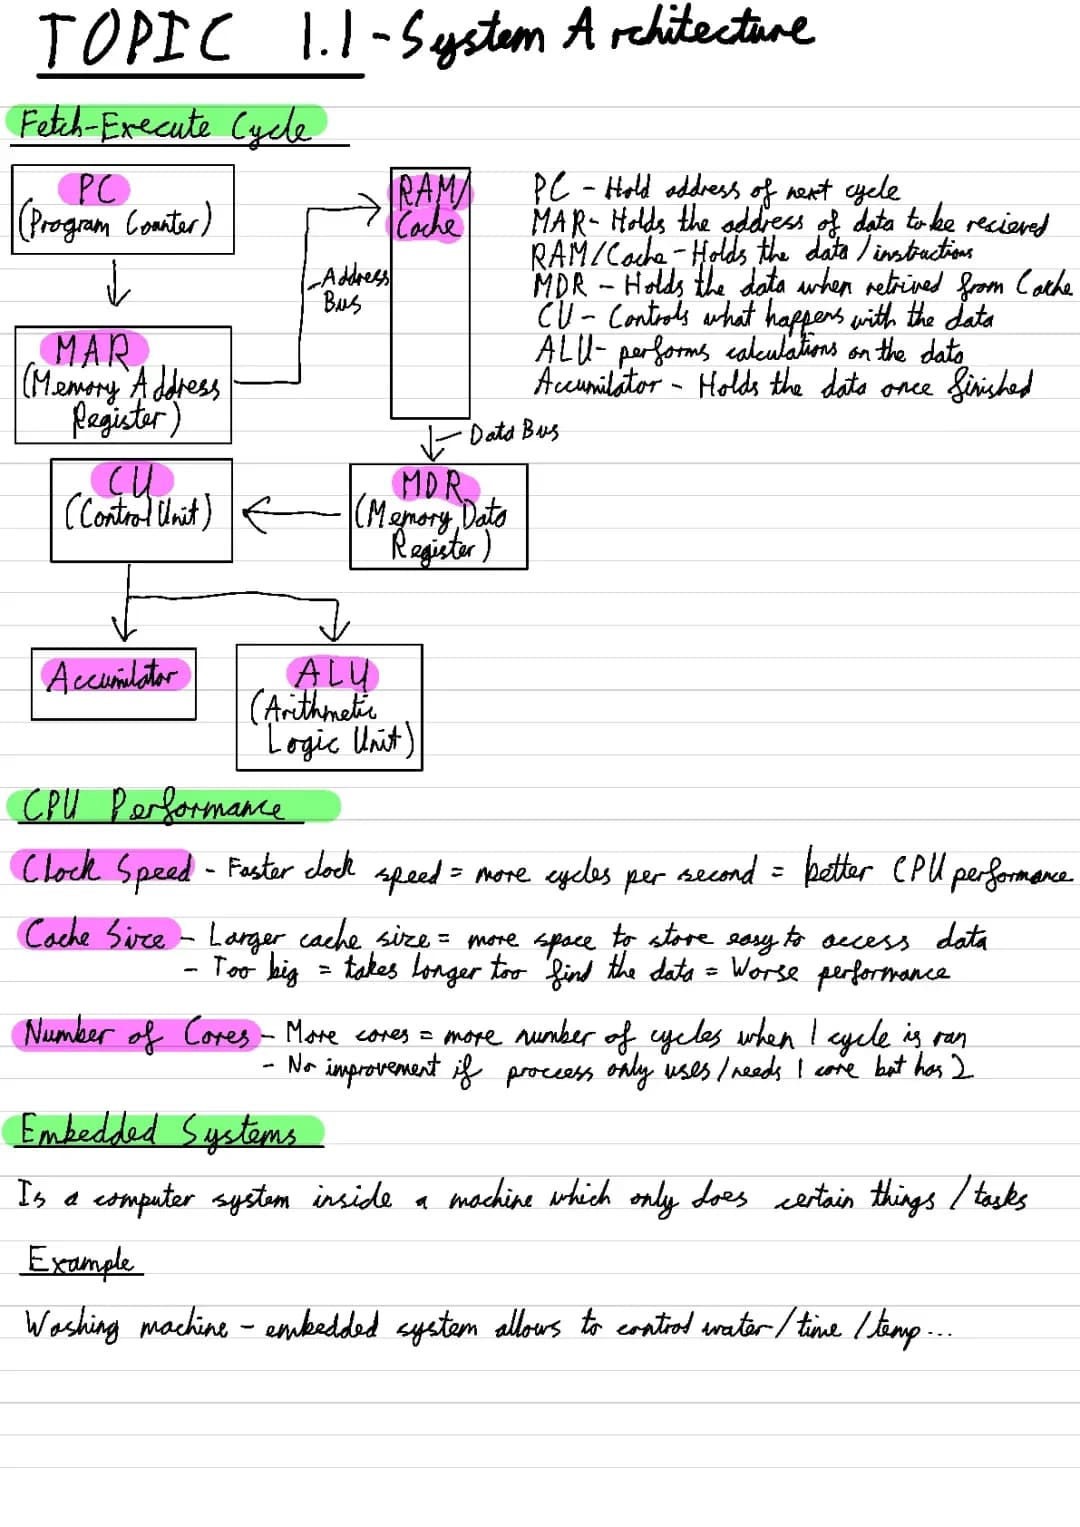 TOPIC 1.1 - System Architecture
Fetch-Execute Cycle
PC
(Program Counter)
MAR
(Memory Address
Register)
Address
Bus
RAM/
Cache
PC - Hold address of next cycle
MAR - Holds the address of data to be recieved
RAM/Cache - Holds the data / instructions
MDR - Holds the data when retrived from Cache
CU - Controls what happens with the data
ALU - performs calculations on the data
Accumilator - Holds the data once finished
Data Bus
CU
(Control Unit)
MDR
(Memory Data
Register)
Accumilator
ALU
(Arithmetic
Logic Unit)
CPU Performance
Clock Speed - Faster clock speed = more cycles per second = better CPU performance
Cache Size - Larger cache size = more space to store easy to access data
- Too big = takes longer too find the data = Worse performance
Number of Cores - More cores = more number of cycles when 1 cycle is ran
- No improvement if proccess only uses/needs 1 core but has 2
Embedded Systems
Is a computer system inside a machine which only does certain things / tasks
Example
Washing machine - embedded system allows to control water/time/temp...